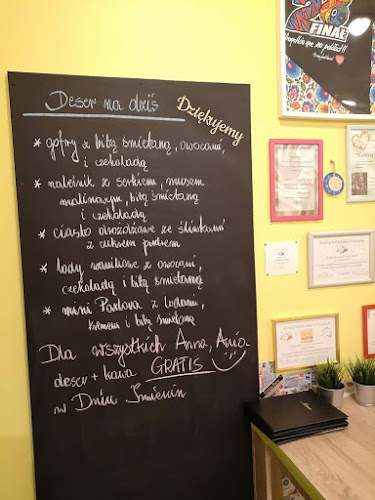 FINAŁ
Deser na dziś
Dziękujemy
* gofry z bitą śmietaną, owocami
i czekoladą
* naleśnik z serkiem, musem
malinowym, bitą śmietaną
i czekoladą
* ciasto drożdżowe ze śliwkami
z cukrem pudrem
* lody waniliowe z owocami,
czekoladą i bitą śmietaną
* mini Pavlova z lodami,
kremem i bitą śmietaną
Dla wszystkich Anna, Ania
deser + kawa GRATIS
w Dniu Imienin